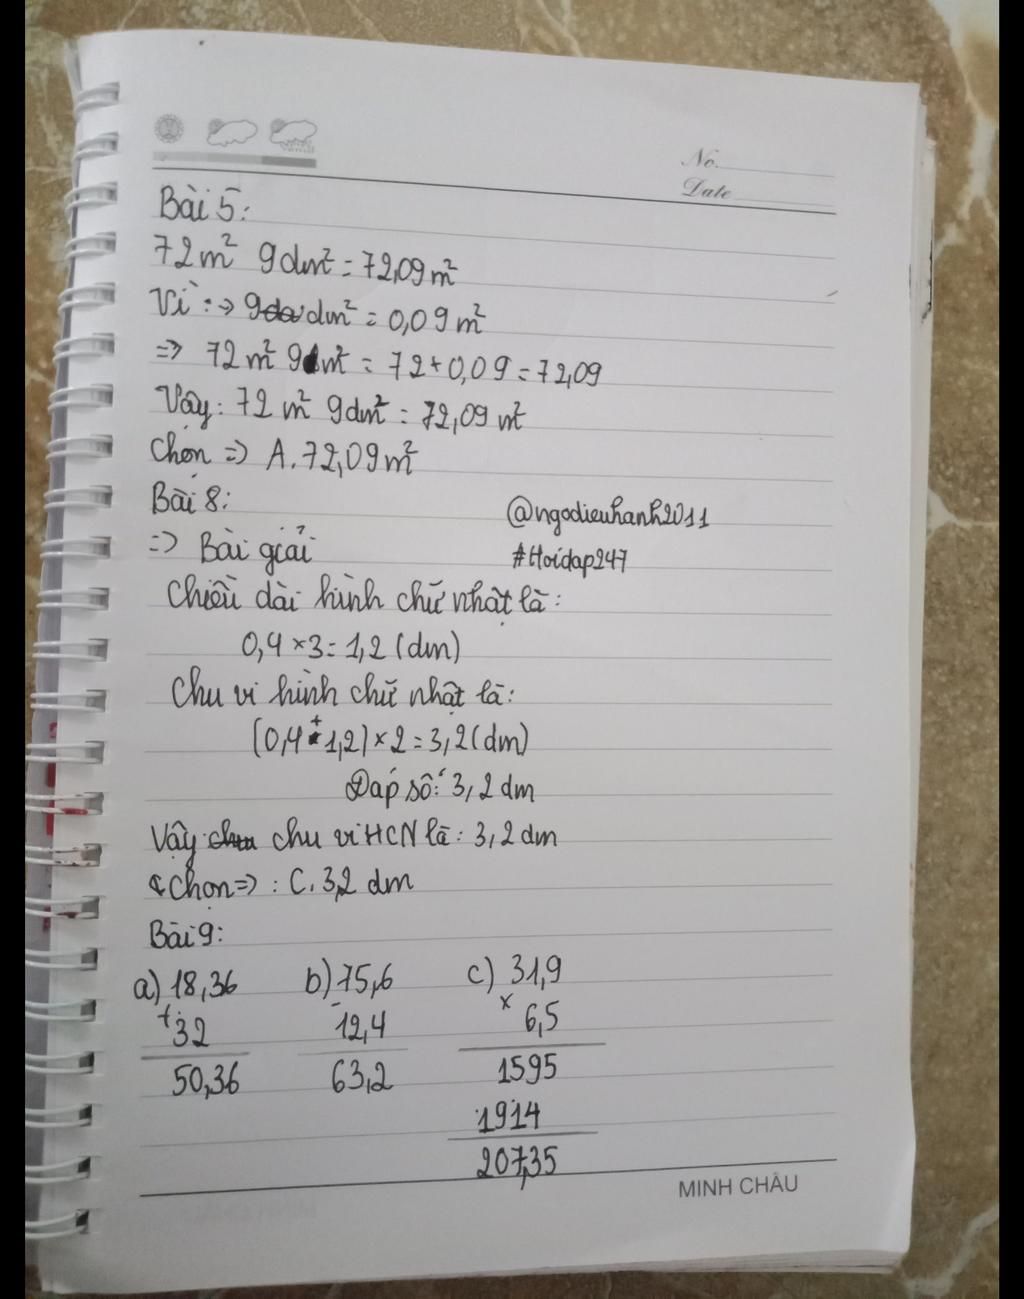 No.
Date
Bài 5:
72m² 9dm² = 72,09m²
Vì :→ 9 dm² = 0,09m²
=> 72m² 9dm² = 72+0,09 = 72,09
Vậy: 72 m² 9dm² = 72,09 m²
Chọn => A. 72,09m²
Bài 8:
@ngodieuhanh2011
=> Bài giải
#Hoidap247
Chiều dài hình chữ nhật là:
0,4 × 3 = 1,2 (dm)
Chu vi hình chữ nhật là:
(0,4 + 1,2) × 2 = 3,2 (dm)
Đáp số: 3,2 dm
Vậy chu vi HCN là: 3,2 dm
Chọn => : C. 3,2 dm
Bài 9:
a) 18,36 b) 75,6 c) 31,9
+ 32 - 12,4 × 6,5
50,36 63,2 1595
1914
207,35
MINH CHÂU